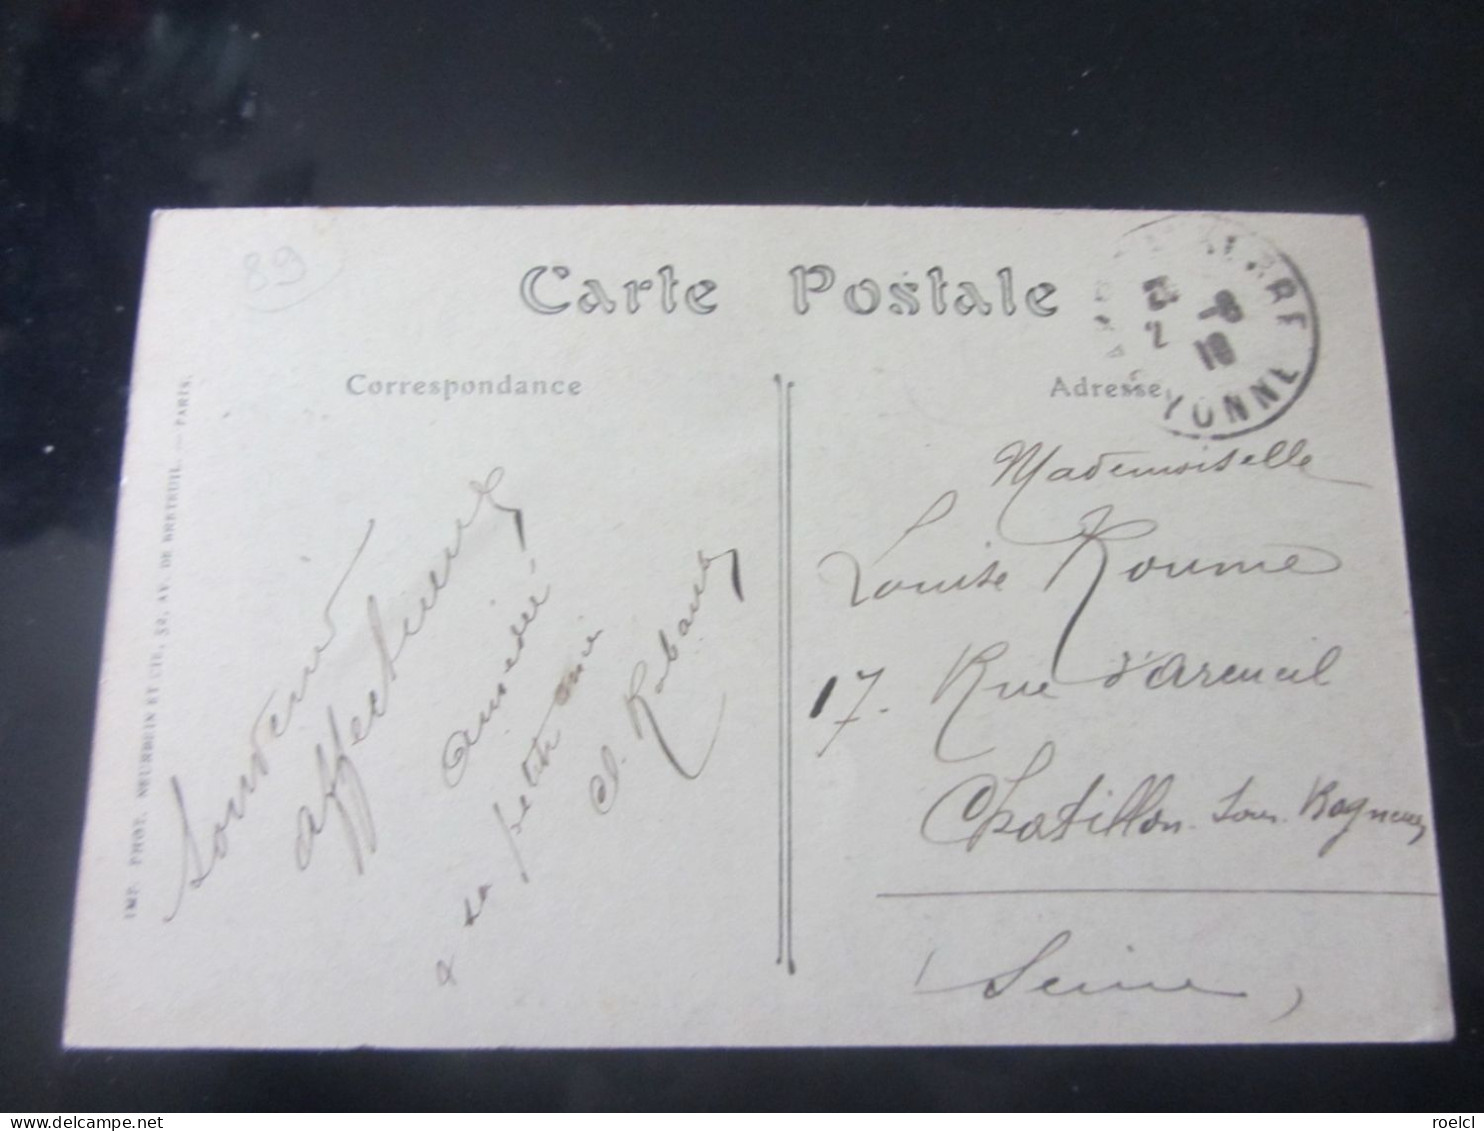 89
Carte Postale
Correspondance
Adresse
YONNE
IMP. PHOT. NEURDEIN ET CIE, 52, AV. DE BRETEUIL. — PARIS.
Souvenir
affectueux
à sa petite amie
Cl.
Mademoiselle
Louise Roume
17. Rue d'Arcueil
Chatillon-sous-Bagneux
Seine,
delcampe.net
roelcl